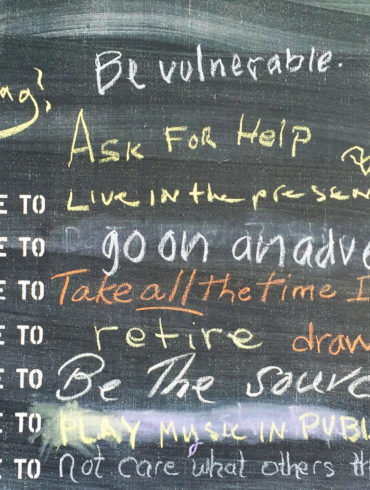 Be vulnerable.
ag?
ASK FOR Help
E TO LIVE IN the presen
E TO go on an adve
E TO Take all the time I
E TO retire draw
E TO Be The sourc
E TO PLAY MUSIC IN PUBL
E TO Not care what others th